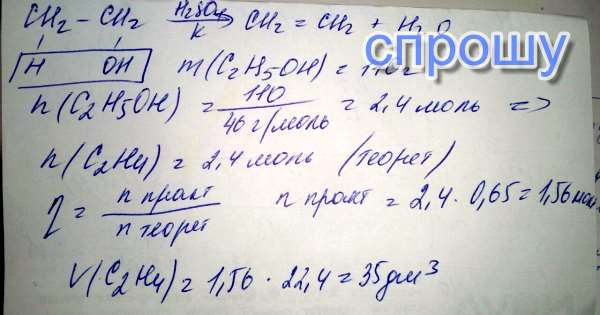 CH₂ - CH₂ H₂SO₄ k → CH₂ = CH₂ + H₂O
спрошу
H OH m(C₂H₅OH) = 110г
n(C₂H₅OH) = 110 / 46 г/моль = 2,4 моль =>
n(C₂H₄) = 2,4 моль (теорет)
η = n практ / n теорет n практ = 2,4 · 0,65 = 1,56 моль
V(C₂H₄) = 1,56 · 22,4 = 35 дм³